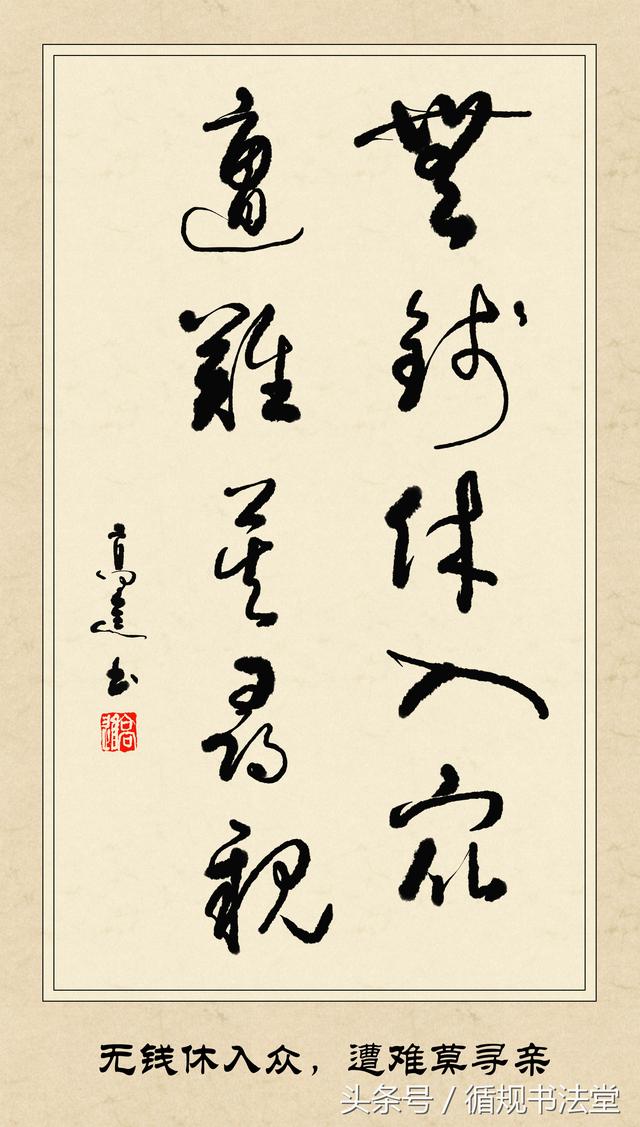 無錢休入眾
遭難莫尋親
高進书
无钱休入众，遭难莫寻亲
头条号 / 循规书法堂